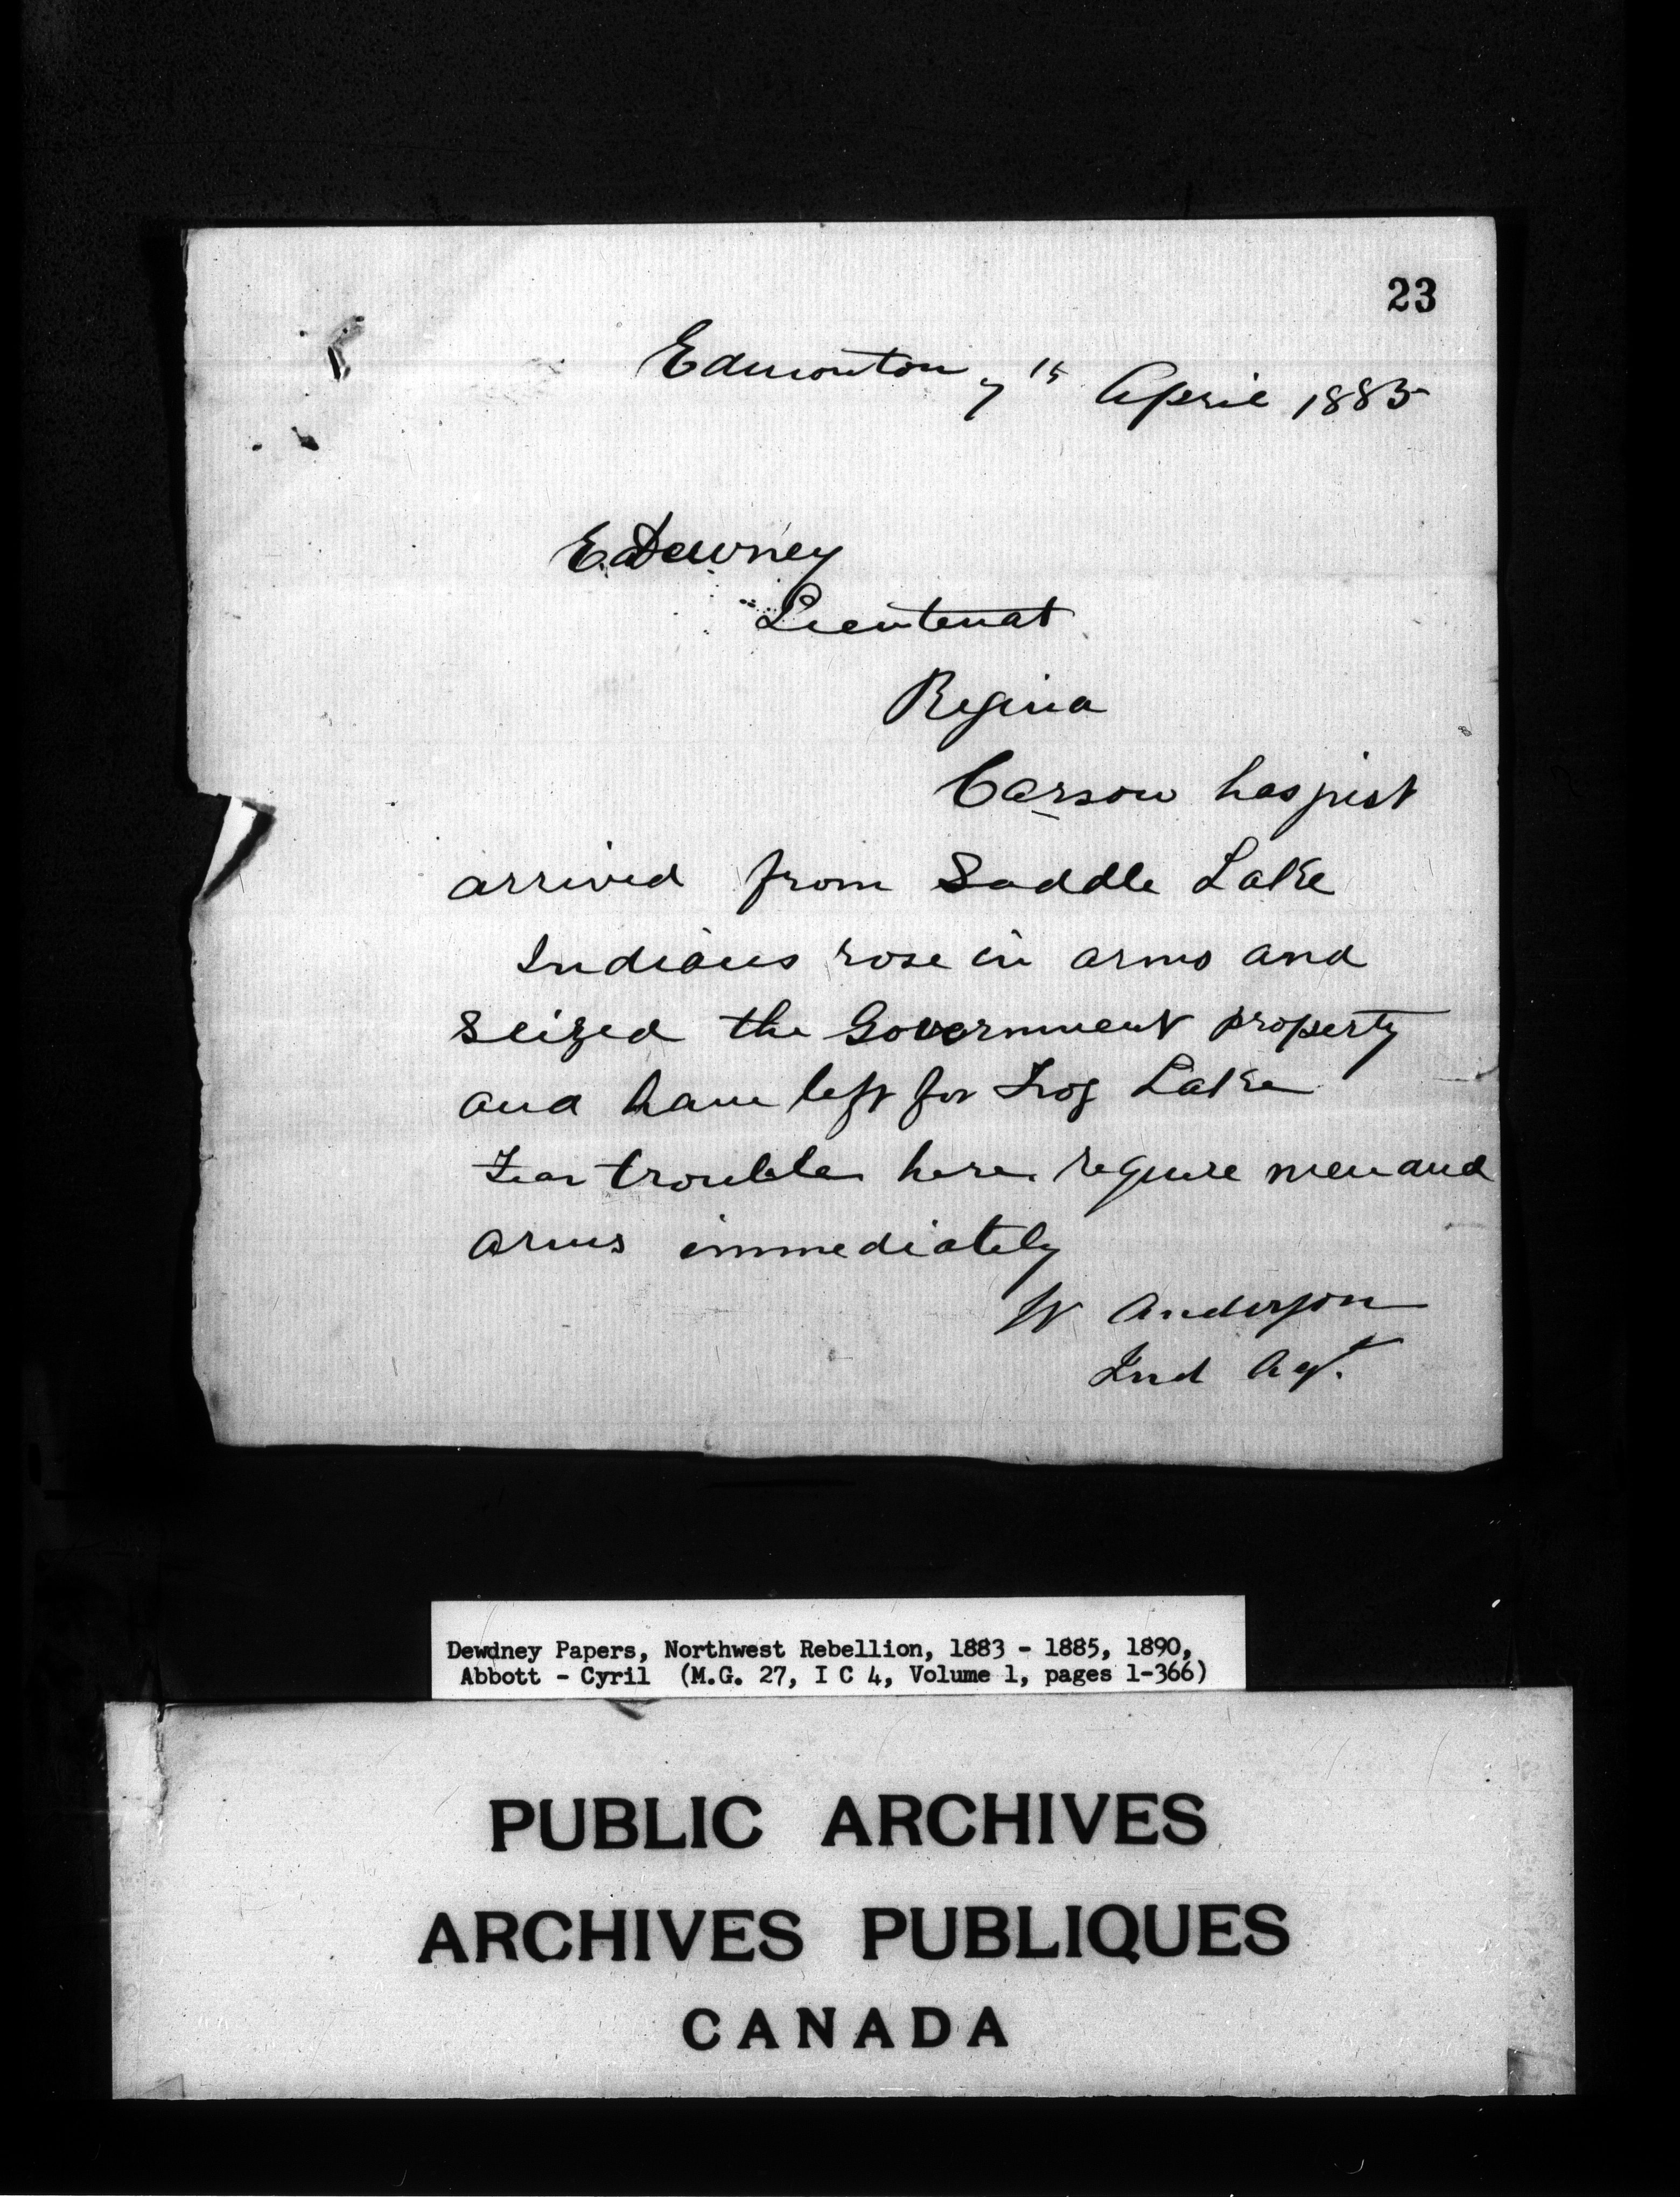 23
Edmonton 7th April 1885
E Dewney
Lieutenat
Regina
Carson has just
arrived from Saddle Lake
Indians rose in arms and
seized the Government property
and have left for Frog Lake
Fear trouble here require men and
arms immediately
W Anderson
Ind Agt.
Dewdney Papers, Northwest Rebellion, 1883 - 1885, 1890,
Abbott - Cyril (M.G. 27, I C 4, Volume 1, pages 1-366)
PUBLIC ARCHIVES
ARCHIVES PUBLIQUES
CANADA